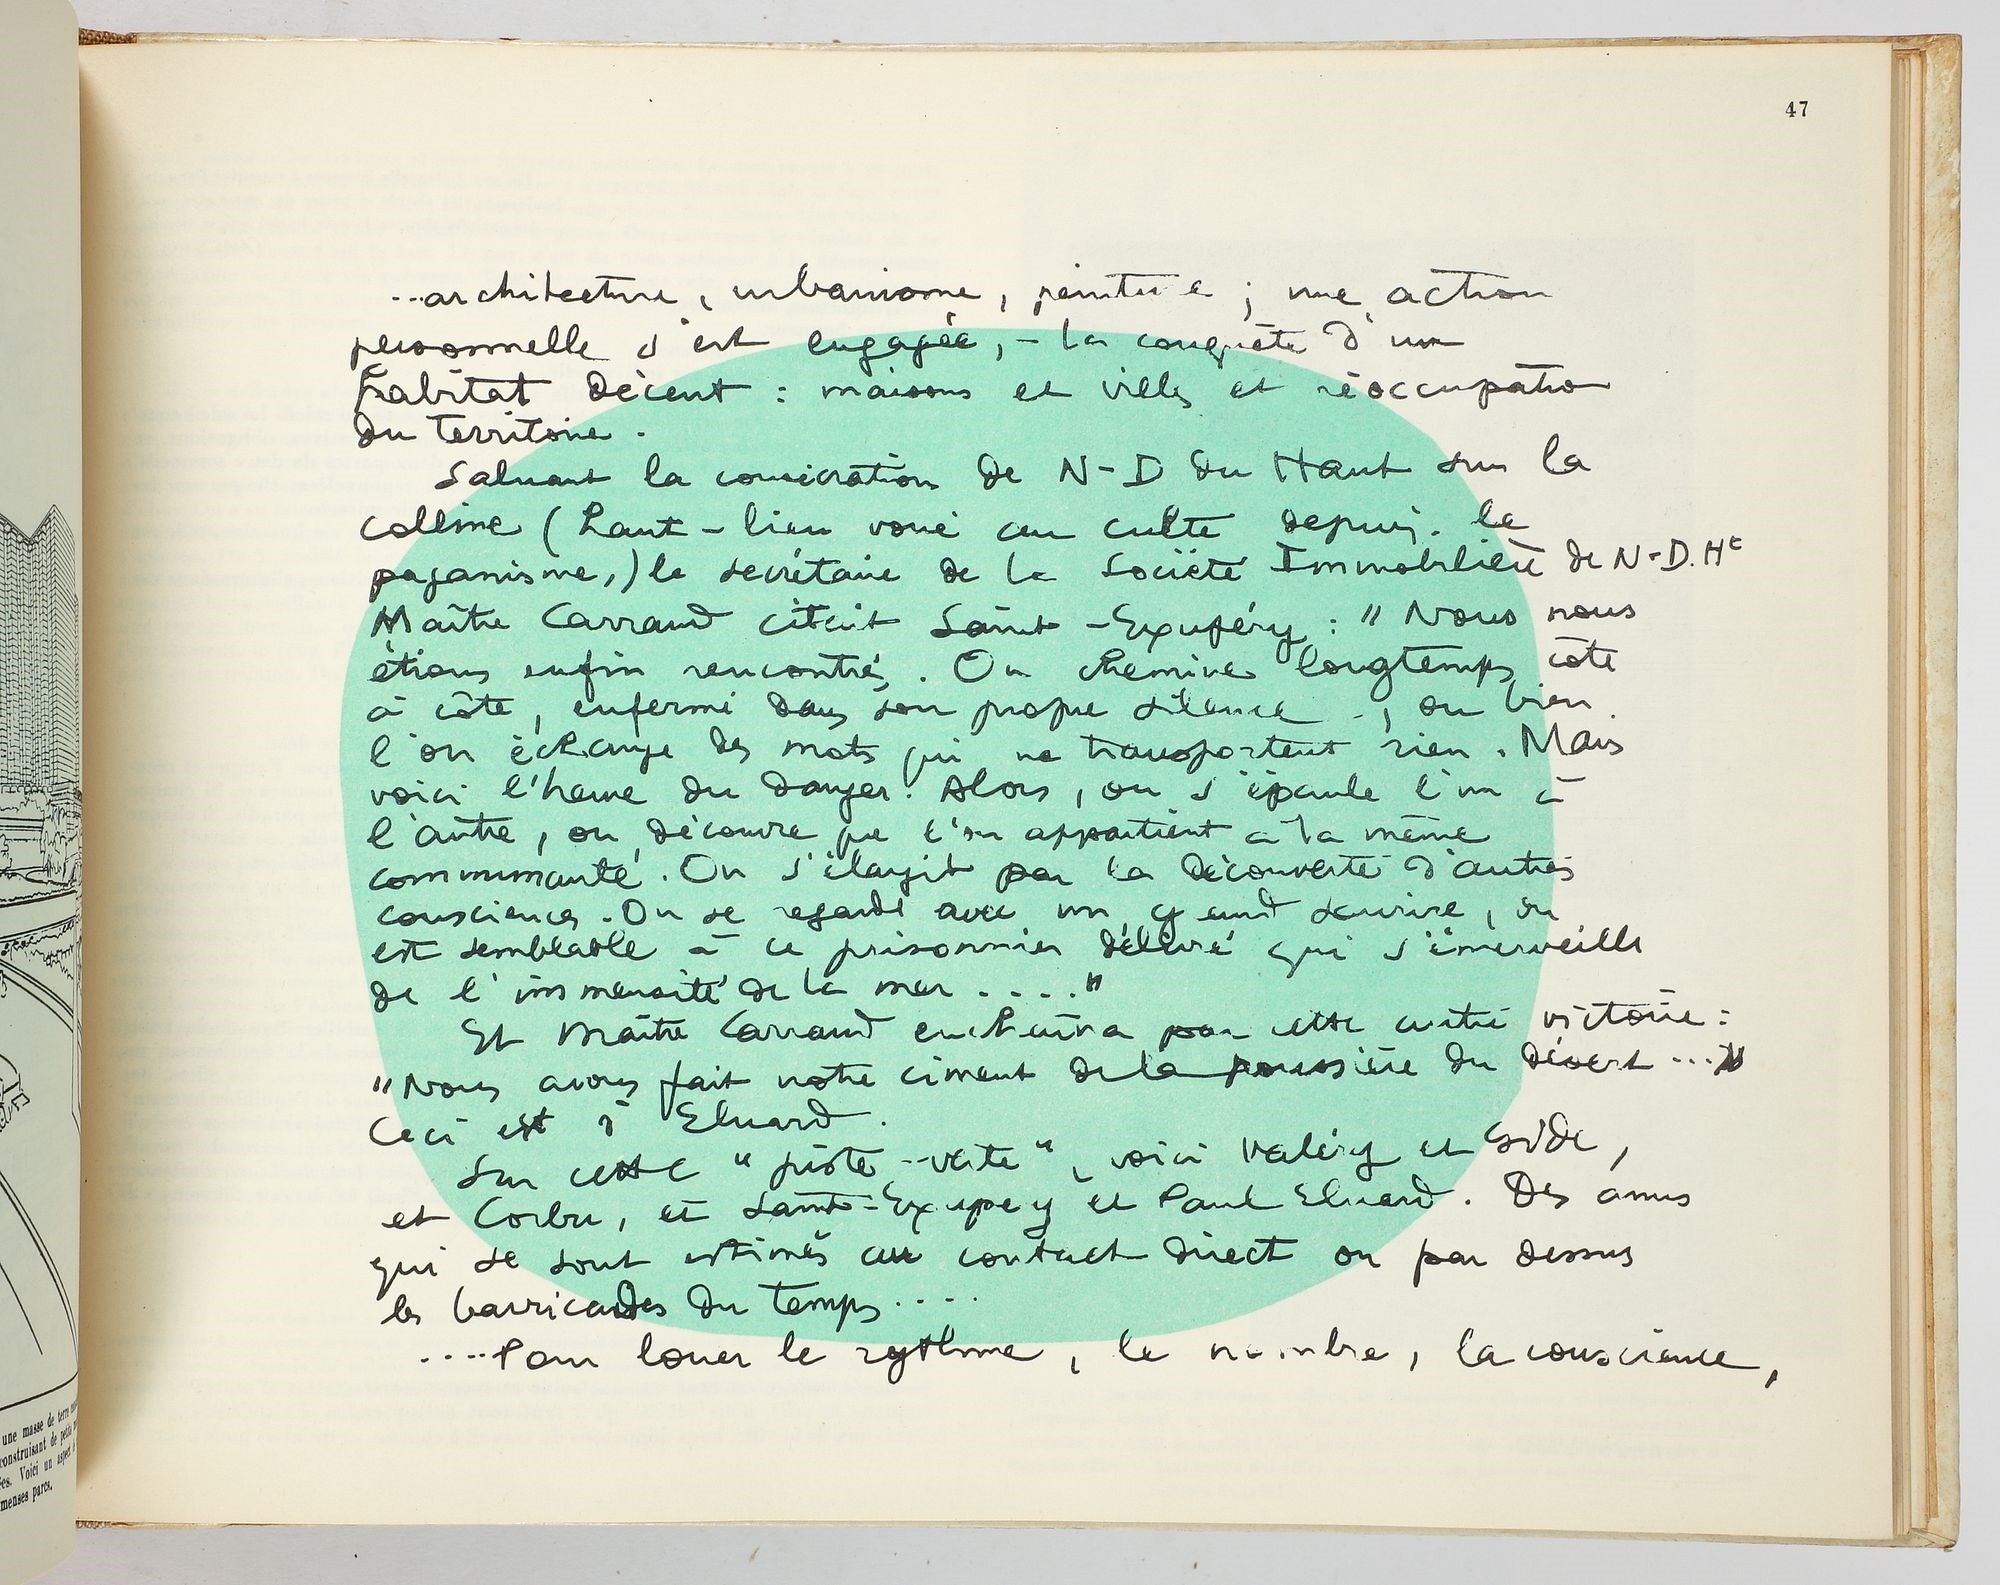 47
...architecture, urbanisme, peinture ; une action
personnelle s'est engagée, - la conquête d'un
habitat décent : maisons et villes et réoccupation
du territoire.
Saluant la consécration de N-D du Haut sur la
colline (haut-lieu voué au culte depuis le
paganisme,) le secrétaire de la Société Immobilière de N-D. Ht
Maître Carraud citait Saint-Exupéry : "Nous nous
étions enfin rencontrés. On chemine longtemps côte
à côte, enfermé dans son propre silence, ou bien
l'on échange des mots qui ne transportent rien. Mais
voici l'heure du danger. Alors, on s'épaule l'un à
l'autre, on découvre que l'on appartient à la même
communauté. On s'élargit par la découverte d'autres
consciences. On se regarde avec un grand sourire, on
est semblable à ce prisonnier délivré qui s'émerveille
de l'immensité de la mer ...."
Et Maître Carraud enchaîna par cette autre victoire :
"Nous avons fait notre ciment de la poussière du désert ..."
Ceci est d'Eluard.
Sur cette "piste-verte", voici Valéry et Gide,
et Corbu, et Saint-Exupéry et Paul Eluard. Des amis
qui se sont estimés au contact direct ou par dessus
les barricades du temps ....
....Pour louer le rythme, le nombre, la conscience,
une masse de terre
construisant de petits
Voici un aspect
menses parcs.